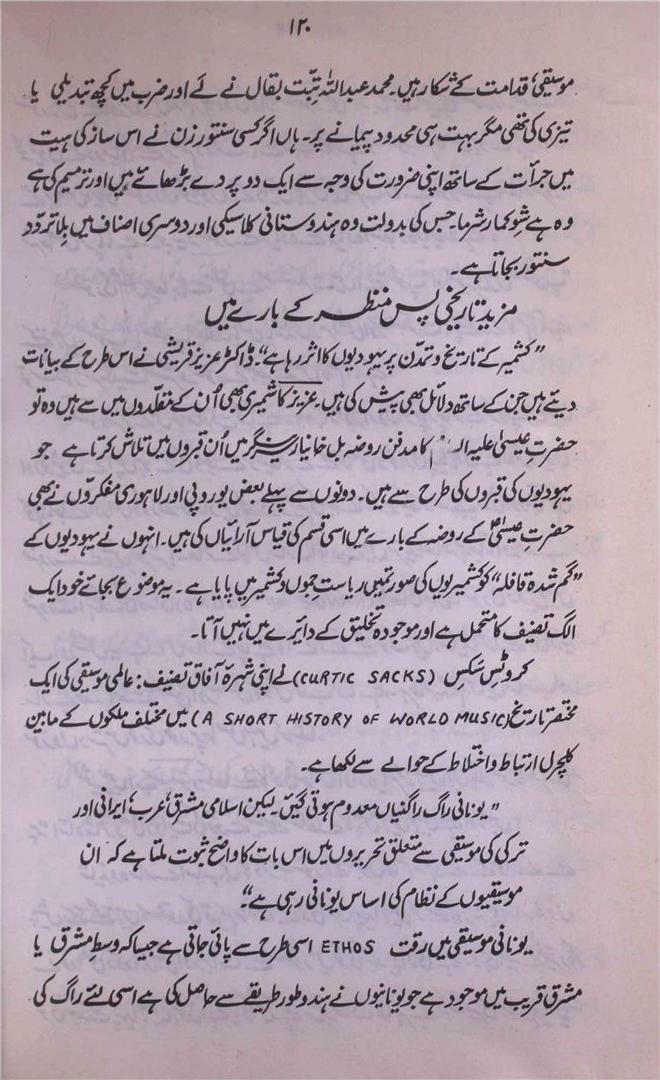 ۱۲۰
موسیقی، قدامت کے شکار ہیں۔ محمد عبداللہ تبّت بقال نے لَے اور ضرب میں کچھ تبدیلی یا
تیزی کی تھی مگر بہت ہی محدود پیمانے پر۔ ہاں اگر کسی سنتور زن نے اس ساز کی ہیت
میں جرأت کے ساتھ اپنی ضرورت کی وجہ سے ایک دو پردے بڑھائے ہیں اور ترمیم کی ہے
وہ ہے شِو کمار شرما۔ جس کی بدولت وہ ہندوستانی کلاسیکی اور دوسری اصناف میں بِلا تردّد
سنتور بجاتا ہے۔
مزید تاریخی پس منظر کے بارے میں
”کشمیر کے تاریخ و تمدّن پر یہودیوں کا اثر رہا ہے“۔ ڈاکٹر عزیز قریشی نے اس طرح کے بیانات
دیئے ہیں جن کے ساتھ دلائل بھی پیش کی ہیں۔ عزیز کاشمیری بھی اُن کے مقلّدوں میں سے ہیں وہ تو
حضرتِ عیسیٰ علیہ کا مدفن روضہ بل خانیار سرینگر میں اُن قبروں میں تلاش کرتا ہے جو
یہودیوں کی قبروں کی طرح سے ہیں۔ دونوں سے پہلے بعض یوروپی اور لاہوری مفکروں نے بھی
حضرتِ عیسیٰؑ کے روضہ کے بارے میں اسی قسم کی قیاس آرائیاں کی ہیں۔ انہوں نے یہودیوں کے
”گم شدہ قافلہ“ کو کشمیریوں کی صورت میں ریاستِ جموں و کشمیر میں پایا ہے۔ یہ موضوع بجائے خود ایک
الگ تصنیف کا متحمل ہے اور موجودہ تخلیق کے دایرے میں نہیں آتا۔
کروٹس سَکس (CURTIC SACKS) نے اپنی شہرۂ آفاق تصنیف: عالمی موسیقی کی ایک
مختصر تاریخ (A SHORT HISTORY OF WORLD MUSIC) میں مختلف ملکوں کے مابین
کلچرل ارتباط و اختلاط کے حوالے سے لکھا ہے۔
”یونانی راگ راگنیاں معدوم ہوتی گئیں۔ لیکن اسلامی مشرق، عرب، ایرانی اور
ترکی کی موسیقی سے متعلق تحریروں میں اس بات کا واضح ثبوت ملتا ہے کہ ان
موسیقیوں کے نظام کی اساس یونانی رہی ہے“۔
یونانی موسیقی میں رقت ETHOS اسی طرح سے پائی جاتی ہے جیسا کہ وسطِ مشرق یا
مشرقِ قریب میں موجود ہے جو یونانیوں نے ہندو طور طریقے سے حاصل کی ہے اسی لئے راگ کی